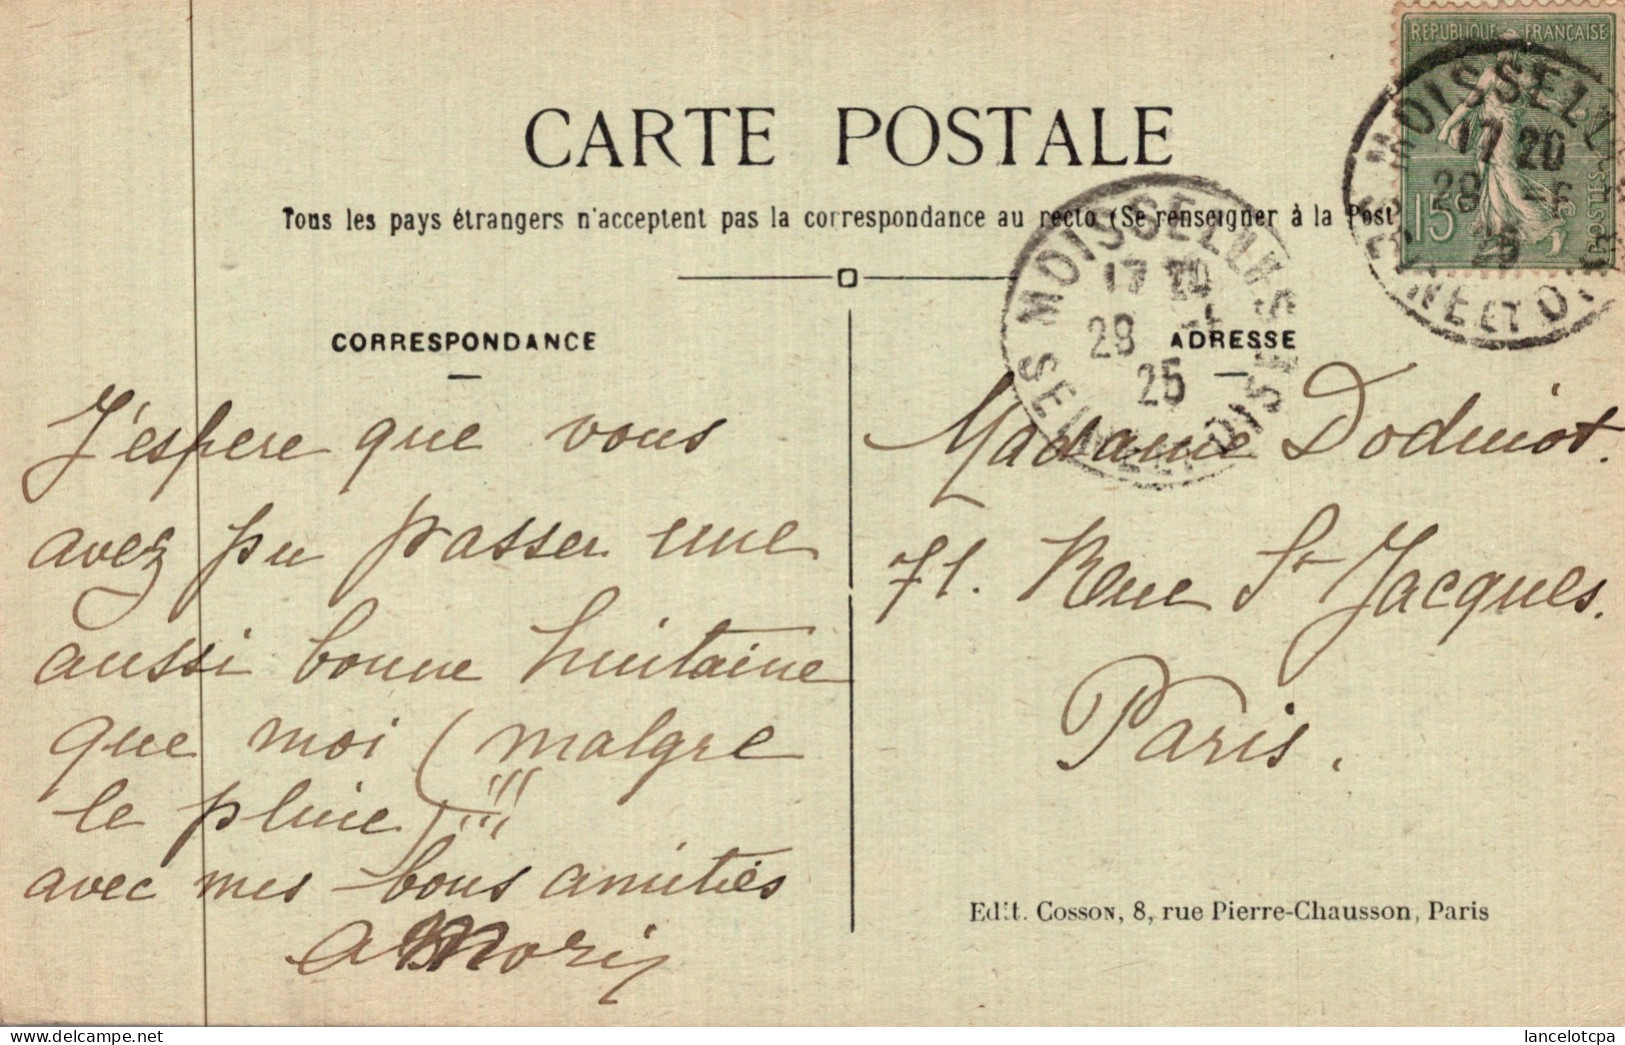 CARTE POSTALE
Tous les pays étrangers n'acceptent pas la correspondance au recto (Se renseigner à la Post
CORRESPONDANCE
J'espere que vous
avez pu passer une
aussi bonne huitaine
que moi (malgre
le pluie) !!!
avec mes bons amitiés
ADRESSE
Madame Dodmiot.
71. Rue St Jacques.
Paris.
Edit. Cosson, 8, rue Pierre-Chausson, Paris
REPUBLIQUE FRANÇAISE
15
POSTES
MOISSELL
17 20
28
25
MOISSELLES
17 20
28
25
SEINE ET OISE
lancelotcpa